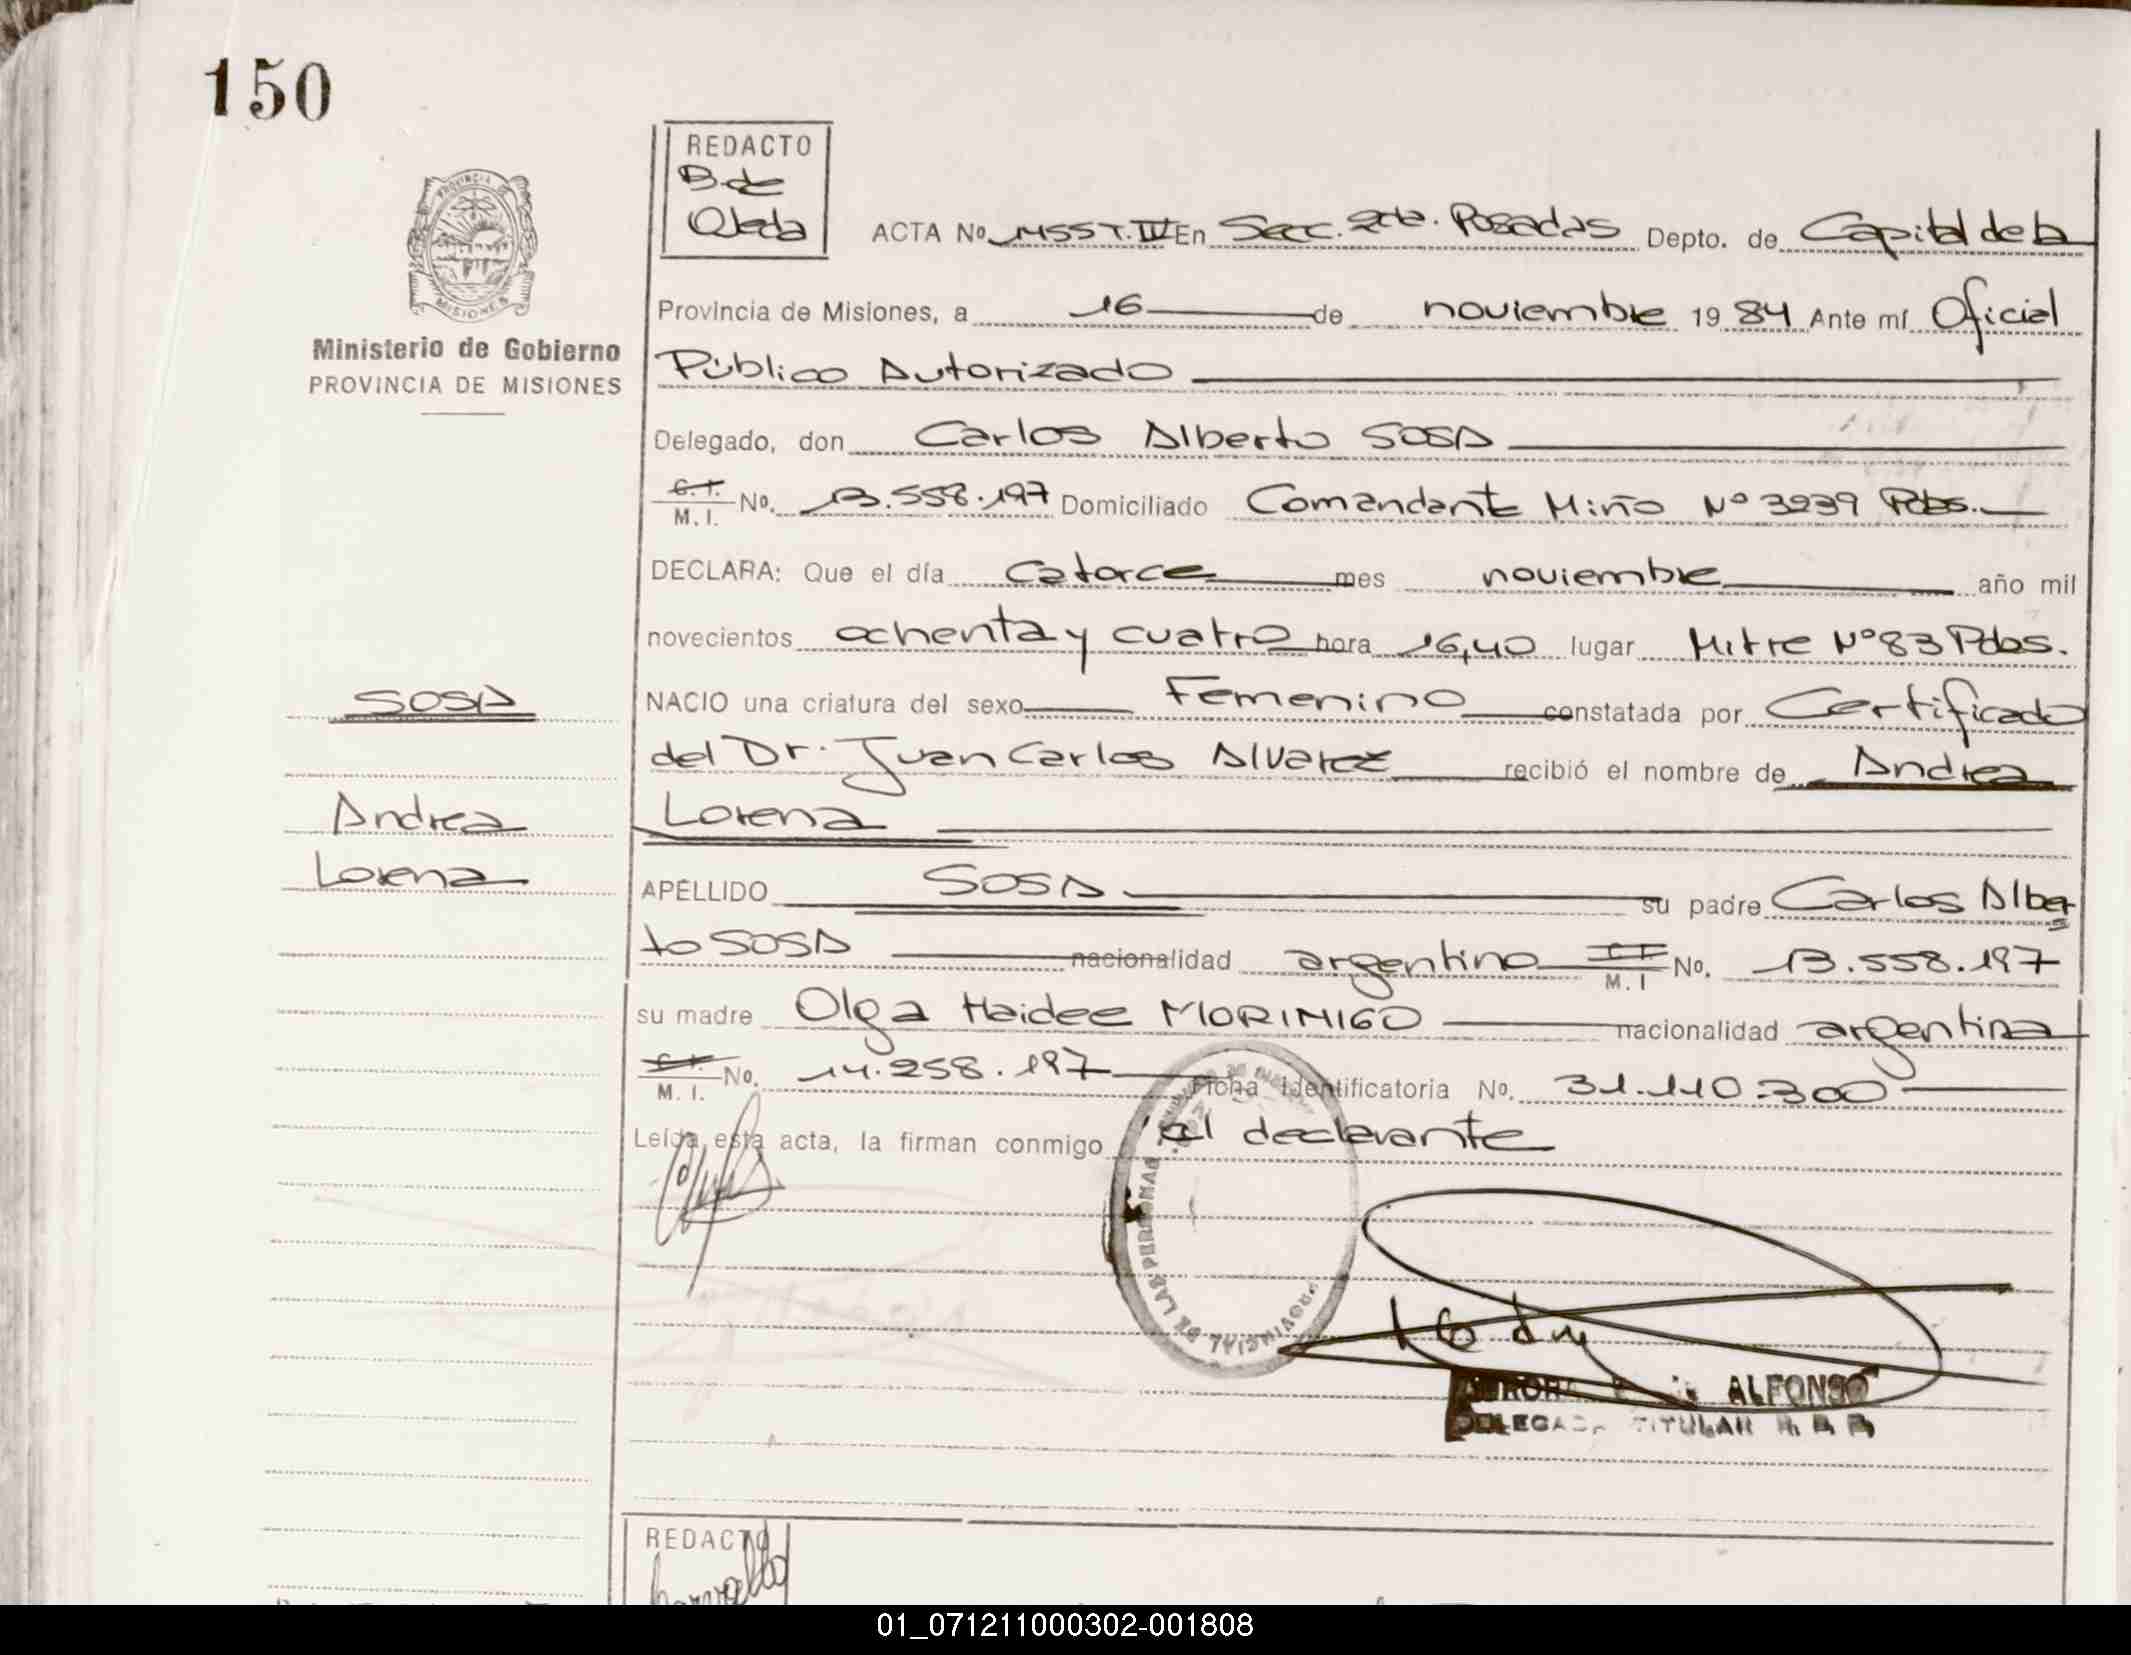 150
REDACTO
B. de
Ojeda
PROVINCIA
MISIONES
Ministerio de Gobierno
PROVINCIA DE MISIONES
ACTA Nº 1455 T. IV En Secc. 2da. Posadas Depto. de Capital de la
Provincia de Misiones, a 16 de noviembre 1984 Ante mí Oficial
Público Autorizado
Delegado, don Carlos Alberto SOSA
C. I. M. I. Nº. 13.558.197 Domiciliado Comandante Miño Nº 3239 Pdas.
DECLARA: Que el día Catorce mes noviembre año mil
novecientos ochenta y cuatro hora 16,40 lugar Mitre Nº 83 Pdas.
SOSA
NACIO una criatura del sexo Femenino constatada por Certificado
del Dr. Juan Carlos Alvarez recibió el nombre de Andrea
Andrea
Lorena
Lorena
APELLIDO SOSA su padre Carlos Alber
to SOSA nacionalidad argentino C. I. M. I Nº. 13.558.197
su madre Olga Haidee MORINIGO nacionalidad argentina
C. I. M. I. Nº. 14.258.197 Ficha Identificatoria Nº. 31.110.300
Leída esta acta, la firman conmigo el declarante
PROVINCIAL DE LAS PERSONAS
ALFONSO
DELEGADA TITULAR
REDACTO
01_071211000302-001808